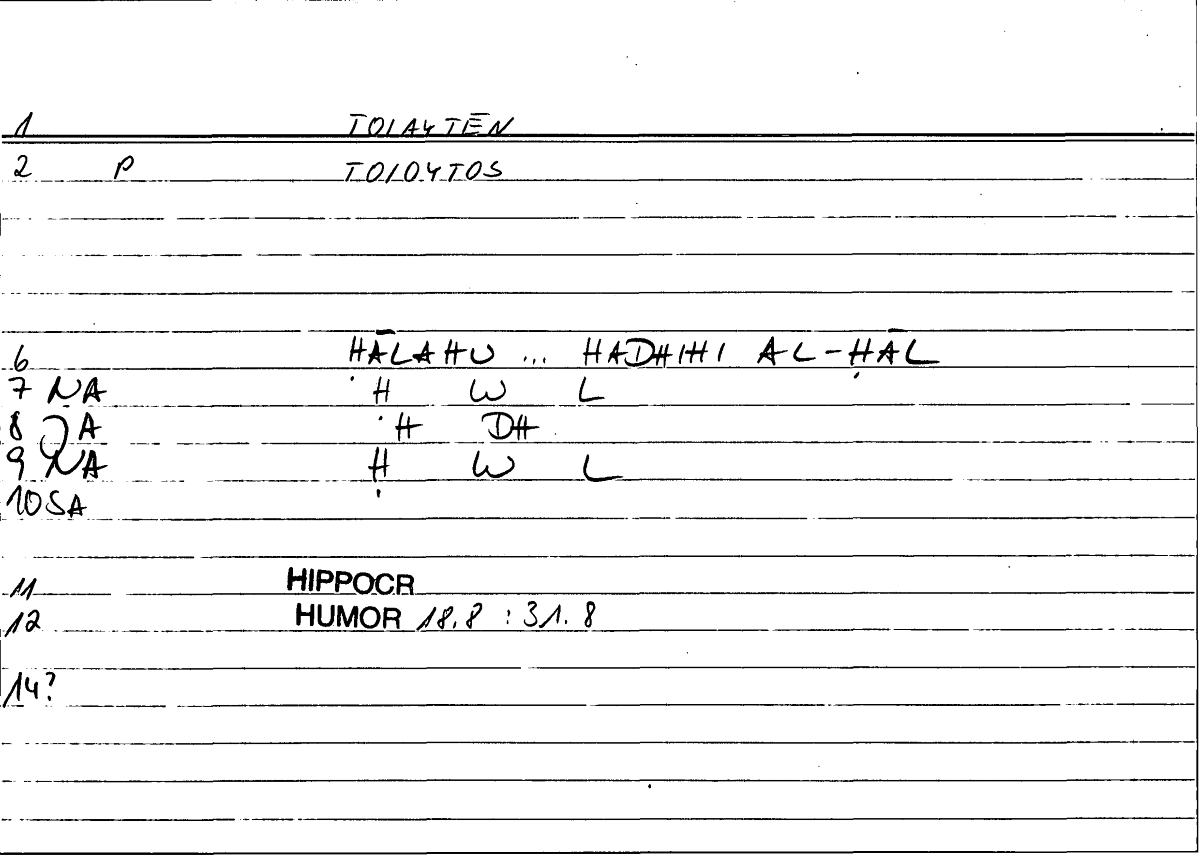 1 TOIAYTĒN
2 P TOIOYTOS
6 ḤĀLAHU ... HADHIHI AL-ḤĀL
7 NA Ḥ W L
8 JA H DH
9 NA Ḥ W L
10 SA
11 HIPPOCR
12 HUMOR 18.8 : 31.8
14?